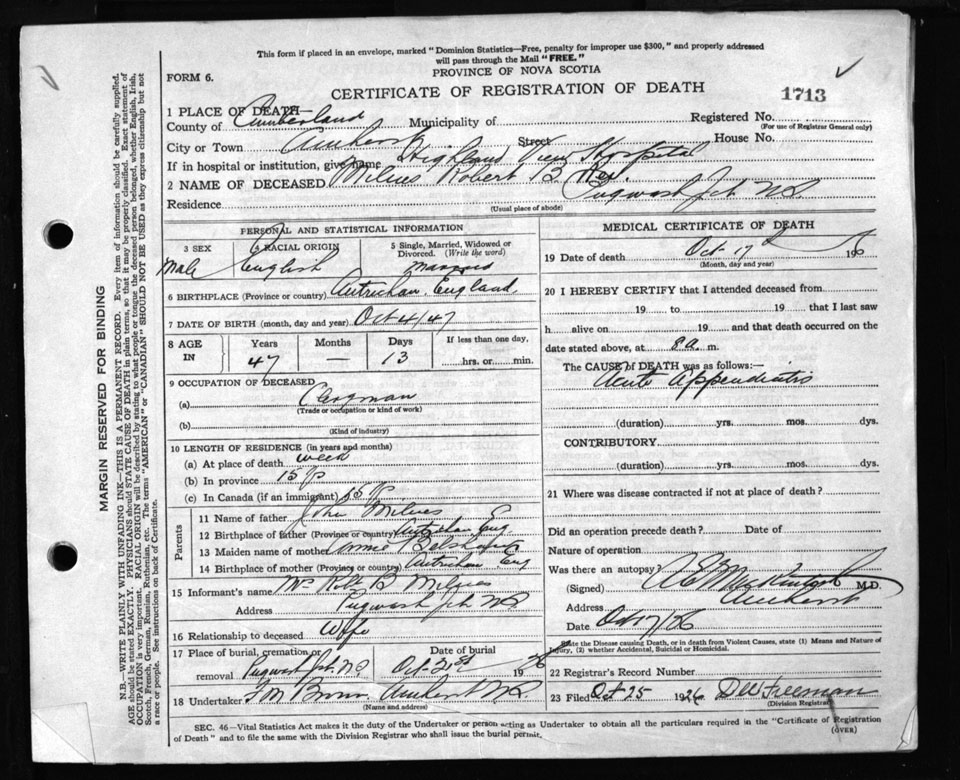 This form if placed in an envelope, marked "Dominion Statistics—Free, penalty for improper use $300," and properly addressed
will pass through the Mail "FREE."
FORM 6.
PROVINCE OF NOVA SCOTIA
CERTIFICATE OF REGISTRATION OF DEATH
1713
1 PLACE OF DEATH—
County of Cumberland Municipality of Registered No.
(For use of Registrar General only)
City or Town Amherst Street House No.
If in hospital or institution, give name Highland View Hospital
2 NAME OF DECEASED Milnes Robert B (Rev).
Residence Pugwash Jct N.S.
(Usual place of abode)
PERSONAL AND STATISTICAL INFORMATION
3 SEX 4 RACIAL ORIGIN 5 Single, Married, Widowed or Divorced. (Write the word)
Male English Married
6 BIRTHPLACE (Province or country) England
7 DATE OF BIRTH (month, day and year) Oct 4/47
8 AGE IN Years Months Days If less than one day,
47 — 13 hrs. or min.
9 OCCUPATION OF DECEASED
(a) Clergman
(Trade or occupation or kind of work)
(b)
(Kind of industry)
10 LENGTH OF RESIDENCE (in years and months)
(a) At place of death week
(b) In province 15
(c) In Canada (if an immigrant) 15
Parents
11 Name of father John Milnes
12 Birthplace of father (Province or country) Eng
13 Maiden name of mother Annie
14 Birthplace of mother (Province or country) Eng
15 Informant's name Mrs Robt B Milnes
Address Pugwash Jct N.S.
16 Relationship to deceased Wife
17 Place of burial, cremation or removal Date of burial
Pugwash Jct. N.S Oct 21st 1926
18 Undertaker Amherst N.S.
(Name and address)
MEDICAL CERTIFICATE OF DEATH
19 Date of death Oct 17 1926
(Month, day and year)
20 I HEREBY CERTIFY that I attended deceased from
19 to 19 that I last saw
h alive on 19 and that death occurred on the
date stated above, at 8 a. m.
The CAUSE OF DEATH was as follows:—
Acute Appendicitis
(duration) yrs. mos. dys.
CONTRIBUTORY
(duration) yrs. mos. dys.
21 Where was disease contracted if not at place of death?
Did an operation precede death? Date of
Nature of operation
Was there an autopsy?
(Signed) M.D.
Address Amherst
Date Oct 17/26
State the Disease causing Death, or in death from Violent Causes, state (1) Means and Nature of
Injury, (2) whether Accidental, Suicidal or Homicidal.
22 Registrar's Record Number
23 Filed Oct 25 1926 D W Freeman
(Division Registrar)
SEC. 46—Vital Statistics Act makes it the duty of the Undertaker or person acting as Undertaker to obtain all the particulars required in the "Certificate of Registration
of Death" and to file the same with the Division Registrar who shall issue the burial permit.
(OVER)
MARGIN RESERVED FOR BINDING
N.B.—WRITE PLAINLY WITH UNFADING INK—THIS IS A PERMANENT RECORD. Every item of information should be carefully supplied.
AGE should be stated EXACTLY. PHYSICIANS should STATE CAUSE OF DEATH in plain terms, so that it may be properly classified. Exact statement of
OCCUPATION is very important. RACIAL ORIGIN will be described by stating to what people or tongue the deceased person belonged, whether English, Irish,
Scotch, French, German, Russian, Ruthenian, etc. The terms "AMERICAN" or "CANADIAN" SHOULD NOT BE USED as they express citizenship but not
a race or people. See instructions on back of Certificate.